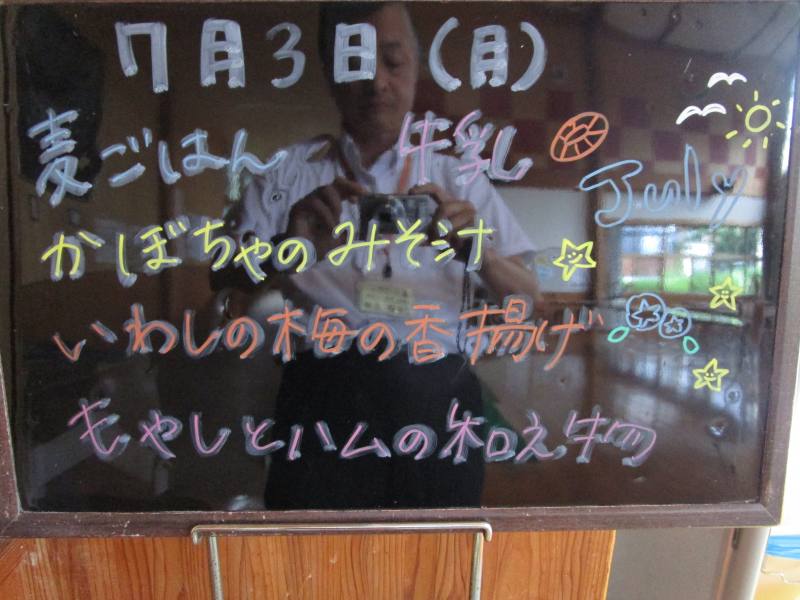 7月3日(月)
麦ごはん 牛乳
July
かぼちゃのみそ汁
いわしの梅の香揚げ
もやしとハムの和え物